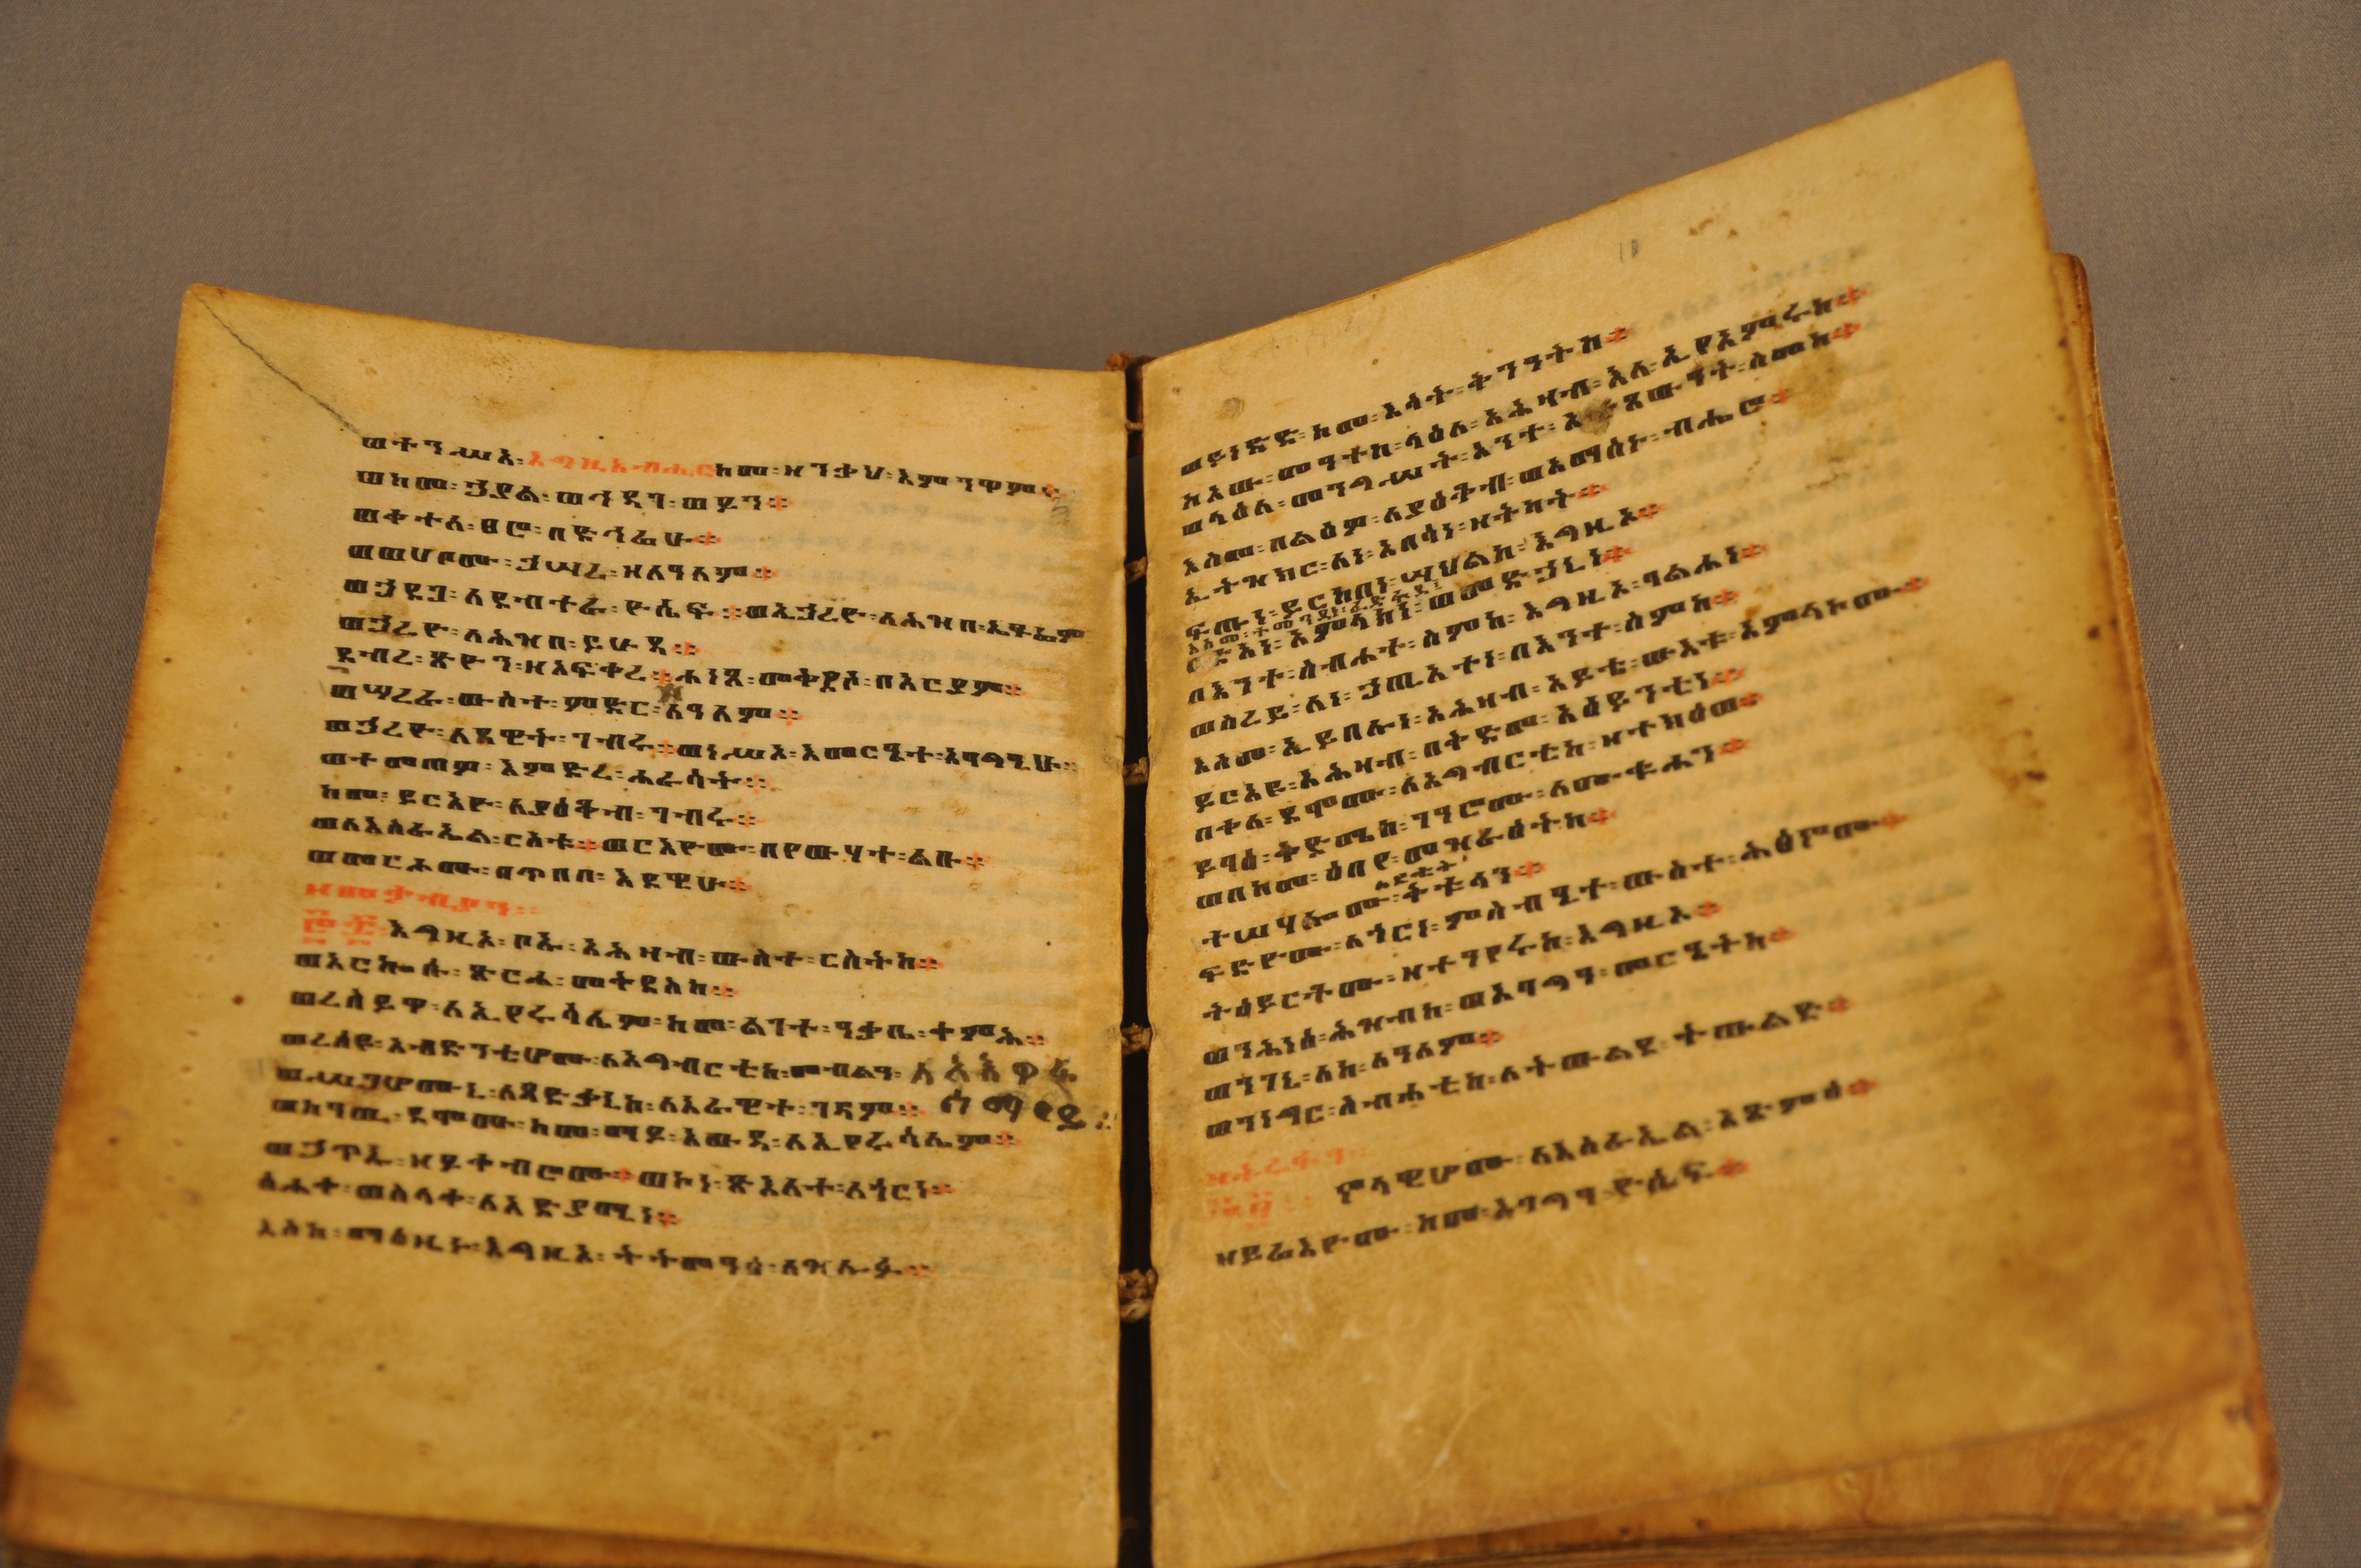 ወተንሥአ፡ እግዚአብሔር ከመ፡ ዘንቃህ፡ እምንዋም።
ወከመ፡ ኃያል፡ ወኅዳገ፡ ወይን።
ወቀተለ፡ ፀሮ፡ በድኅሬሁ።
ወወሀቦሙ፡ ኃሣረ፡ ዘለዓለም።
ወኃደጎ፡ ለደብተራ፡ ዮሴፍ። ወኢኃረዮ፡ ለሕዝበ፡ ኤፍሬም
ወኃረዮ፡ ለሕዝበ፡ ይሁዳ።
ደብረ፡ ጽዮን፡ ዘአፍቀረ። ሐነጸ፡ መቅደሶ፡ በአርያም።
ወሣረራ፡ ውስተ፡ ምድር፡ ለዓለም።
ወኃረዮ፡ ለዳዊት፡ ገብሩ። ወነሥአ፡ እመርዔተ፡ አባግዒሁ።
ወተመጠዎ፡ እምድረ፡ ሐራሳት።
ከመ፡ ይርአዮ፡ ለያዕቆብ፡ ገብሩ።
ወለእስራኤል፡ ርስቱ። ወርእዮሙ፡ በየውሃተ፡ ልቡ።
ወመርሖሙ፡ በጥበበ፡ እደዊሁ።
ዘመቃብያን።
፸፰ እግዚኦ፡ ቦኡ፡ አሕዛብ፡ ውስተ፡ ርስትከ።
ወአርኰሱ፡ ጽርሐ፡ መቅደስከ።
ወረሰይዋ፡ ለኢየሩሳሌም፡ ከመ፡ ልገተ፡ ዓቃቤ፡ ቀምሕ።
ወረሰዩ፡ አብድንቲሆሙ፡ ለአግብርቲከ፡ መብልዓ፡ ለአእዋፈ
ወሥጋሆሙኒ፡ ለጻድቃኒከ፡ ለአራዊተ፡ ገዳም። ሰማይ።
ወከዓዉ፡ ደሞሙ፡ ከመ፡ ማይ፡ አውዳ፡ ለኢየሩሳሌም።
ወኃጥኡ፡ ዘይቀብሮሙ። ወኮነ፡ ጽእለተ፡ ለጎርነ።
ስሐቀ፡ ወስላቀ፡ ለአድያሚነ።
እስከ፡ ማዕዜኑ፡ እግዚኦ፡ ትትመዓዕ፡ ለዝሉፉ።
ወይነድድ፡ ከመ፡ እሳት፡ ቅንዓትከ።
ከዐው፡ መዓተከ፡ ላዕለ፡ አሕዛብ፡ እለ፡ ኢየአምሩከ።
ወላዕለ፡ መንግሥት፡ እንተ፡ ኢጸውዓት፡ ስመከ።
እስመ፡ በልዕዎ፡ ለያዕቆብ፡ ወአማሰኑ፡ ብሔሮ።
ኢትዝክር፡ ለነ፡ አበሳነ፡ ዘትካት።
ፍጡነ፡ ይርከበነ፡ ሣህልከ፡ እግዚኦ።
እስመ፡ ተመንደብነ፡ ፈድፋደ፡
ርድአነ፡ አምላክነ፡ ወመድኃኒነ።
በእንተ፡ ስብሐተ፡ ስምከ፡ እግዚኦ፡ ባልሐነ።
ወስረይ፡ ለነ፡ ኃጢአተነ፡ በእንተ፡ ስምከ።
እስመ፡ ኢይበሉነ፡ አሕዛብ፡ አይቴ፡ ውእቱ፡ አምላኮሙ።
ይርአዩ፡ አሕዛብ፡ በቅድመ፡ አዕይንቲነ።
በቀለ፡ ደሞሙ፡ ለአግብርቲከ፡ ዘተክዕወ።
ይባዕ፡ ቅድሜከ፡ ገዓሮሙ፡ ለሙቁሐን።
ወበከመ፡ ዕበየ፡ መዝራዕትከ።
ተሣሀሎሙ፡ ለደቂቀ፡ ቅቱላን።
ፍድዮሙ፡ ለጎርነ፡ ምስብዒተ፡ ውስተ፡ ሕፅኖሙ።
ትዕይርቶሙ፡ ዘተዓየሩከ፡ እግዚኦ።
ወንሕነሰ፡ ሕዝብከ፡ ወአባግዓ፡ መርዔትከ።
ወንገኒ፡ ለከ፡ ለዓለም።
ወንነግር፡ ስብሐቲከ፡ ለትውልደ፡ ትውልድ።
ኖላዊሆሙ፡ ለእስራኤል፡ አጽምዕ።
ዘይሬእዮሙ፡ ከመ፡ አባግዓ፡ ዮሴፍ።